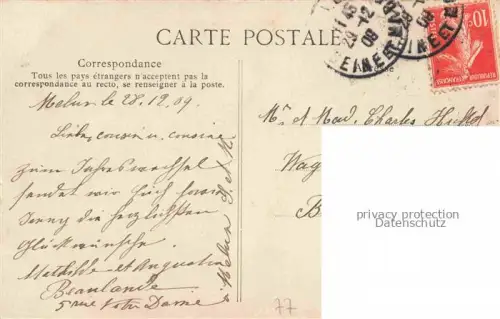 CARTE POSTALE
Correspondance
Tous les pays étrangers n'acceptent pas la
correspondance au recto, se renseigner à la poste.
Melun le 28.12.09.
Liebe cousin u. cousine
zum Jahreswechsel
sendet wir Euch sowie
Jenny die herzlichsten
Glückwünsche.
Mathilde et Augustin
Beaulande
5 rue Notre Dame
Melun S. et M.
Mr et Mad. Charles
Wag
B
privacy protection
Datenschutz
77
10
REPUBLIQUE FRANÇAISE
29-12
09
SEINE ET M